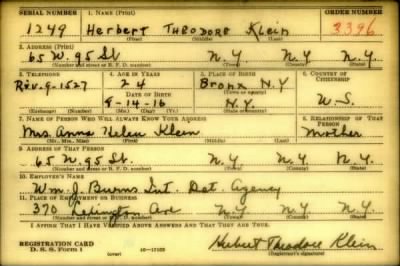 SERIAL NUMBER 1. NAME (Print) ORDER NUMBER
1249 Herbert THEODORE Klein 3396
(First) (Middle) (Last)
2. ADDRESS (Print)
65 W. 95 St N.Y. N.Y. N.Y.
(Number and street or R. F. D. number) (Town) (County) (State)
3. TELEPHONE 4. AGE IN YEARS 5. PLACE OF BIRTH 6. COUNTRY OF CITIZENSHIP
Riv. 9-1527 24 Bronx N.Y
DATE OF BIRTH (Town or county)
8-14-16 N.Y. U.S.
(Exchange) (Number) (Mo.) (Day) (Yr.) (State or country)
7. NAME OF PERSON WHO WILL ALWAYS KNOW YOUR ADDRESS 8. RELATIONSHIP OF THAT PERSON
Mrs. Anna Helen Klein Mother
(Mr., Mrs., Miss) (First) (Middle) (Last)
9. ADDRESS OF THAT PERSON
65 W. 95 St. N.Y. N.Y. N.Y.
(Number and street or R. F. D. number) (Town) (County) (State)
10. EMPLOYER'S NAME
Wm. J. Burns Int. Det. Agency
11. PLACE OF EMPLOYMENT OR BUSINESS
370 Lexington Ave N.Y. N.Y. N.Y.
(Number and street or R. F. D. number) (Town) (County) (State)
I AFFIRM THAT I HAVE VERIFIED ABOVE ANSWERS AND THAT THEY ARE TRUE.
Herbert Theodore Klein
REGISTRATION CARD
D. S. S. FORM 1 (over) (Registrant's signature)